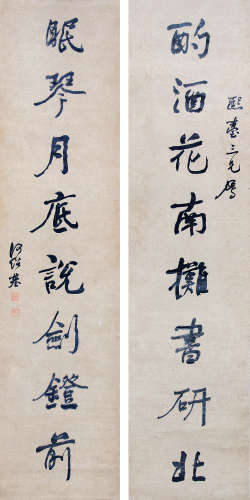 酌酒花南攤書研北
熙臺三兄屬
眠琴月底說劍鐙前
何紹基